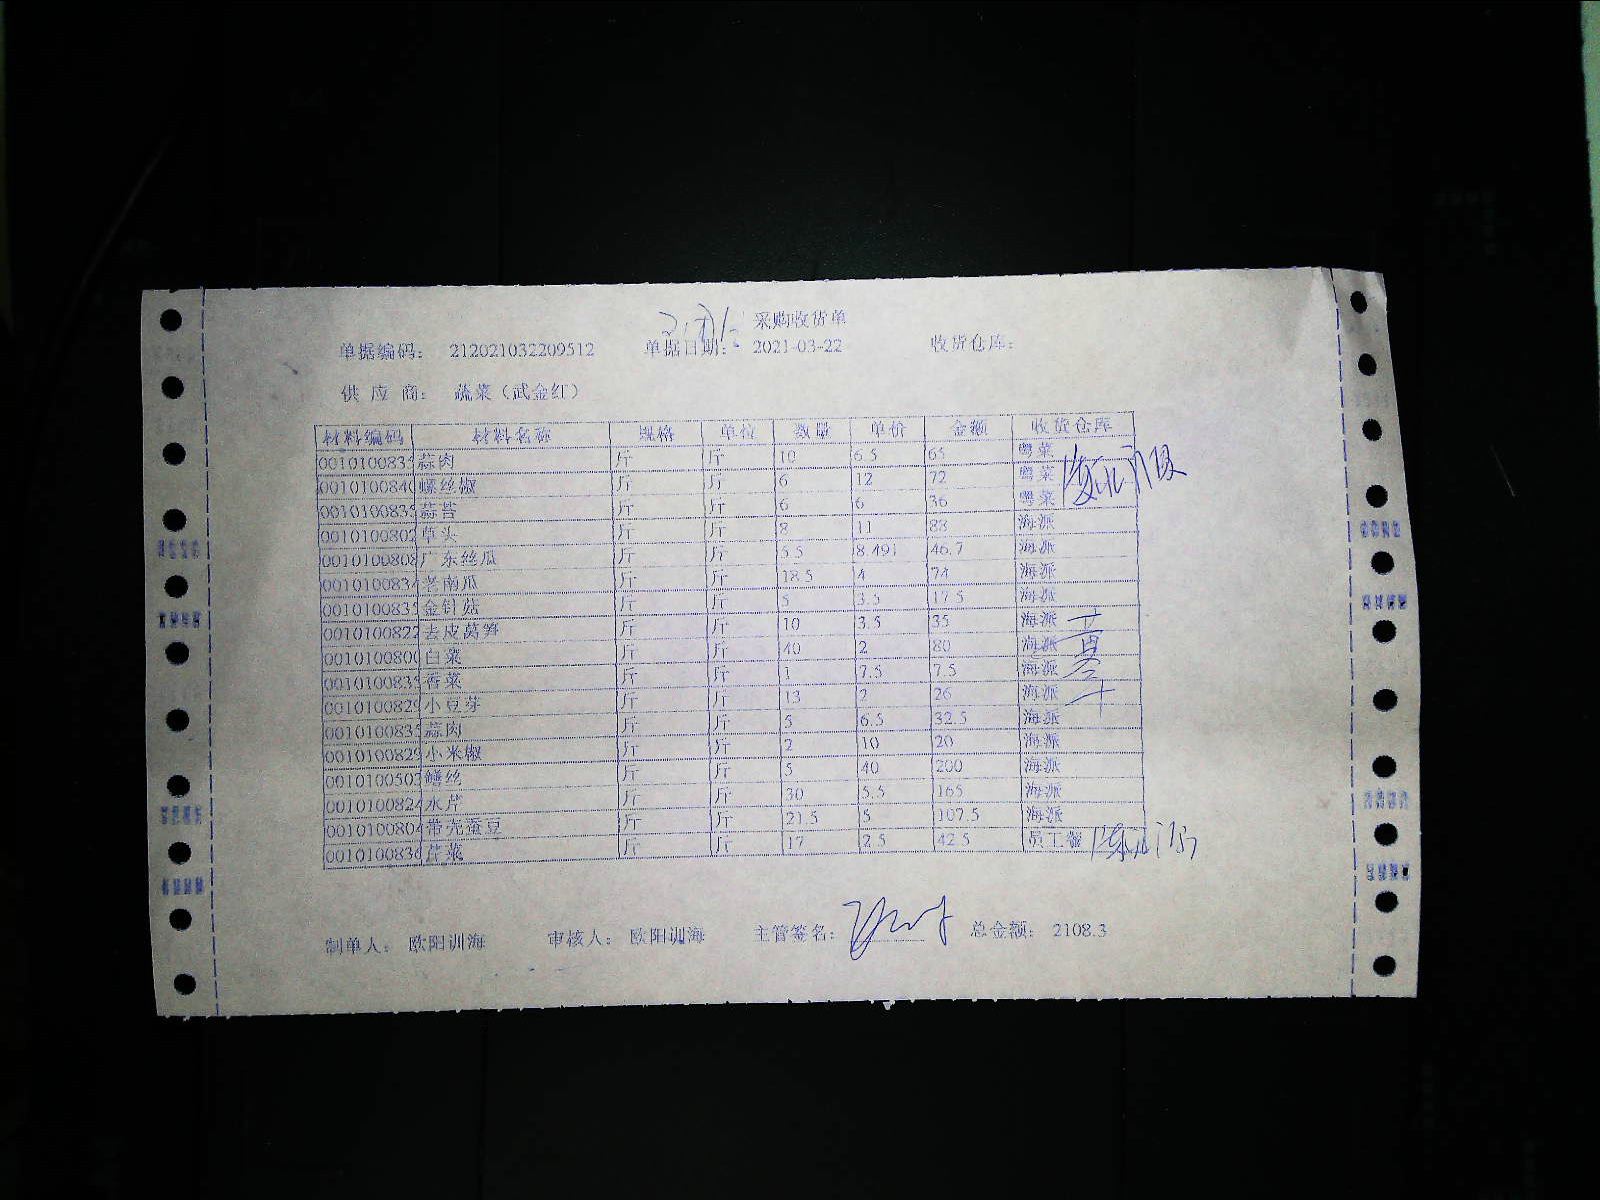 采购收货单
单据编码: 212021032209512 单据日期: 2021-03-22 收货仓库:
供 应 商: 蔬菜(武金红)
材料编码 材料名称 规格 单位 数量 单价 金额 收货仓库
001010083 蒜肉 斤 斤 10 6.5 65 粤菜
001010084 螺丝椒 斤 斤 6 12 72 粤菜
001010083 蒜苔 斤 斤 6 6 36 粤菜
001010080 草头 斤 斤 8 11 88 海派
001010080 广东丝瓜 斤 斤 5.5 8.491 46.7 海派
001010083 老南瓜 斤 斤 18.5 4 74 海派
001010083 金针菇 斤 斤 5 3.5 17.5 海派
001010082 去皮莴笋 斤 斤 10 3.5 35 海派
001010080 白菜 斤 斤 40 2 80 海派
001010083 香菜 斤 斤 1 7.5 7.5 海派
001010082 小豆芽 斤 斤 13 2 26 海派
001010083 蒜肉 斤 斤 5 6.5 32.5 海派
001010082 小米椒 斤 斤 2 10 20 海派
001010050 鳝丝 斤 斤 5 40 200 海派
001010082 水芹 斤 斤 30 5.5 165 海派
001010080 带壳蚕豆 斤 斤 21.5 5 107.5 海派
001010083 芹菜 斤 斤 17 2.5 42.5 员工餐
制单人: 欧阳训海 审核人: 欧阳训海 主管签名: 总金额: 2108.3